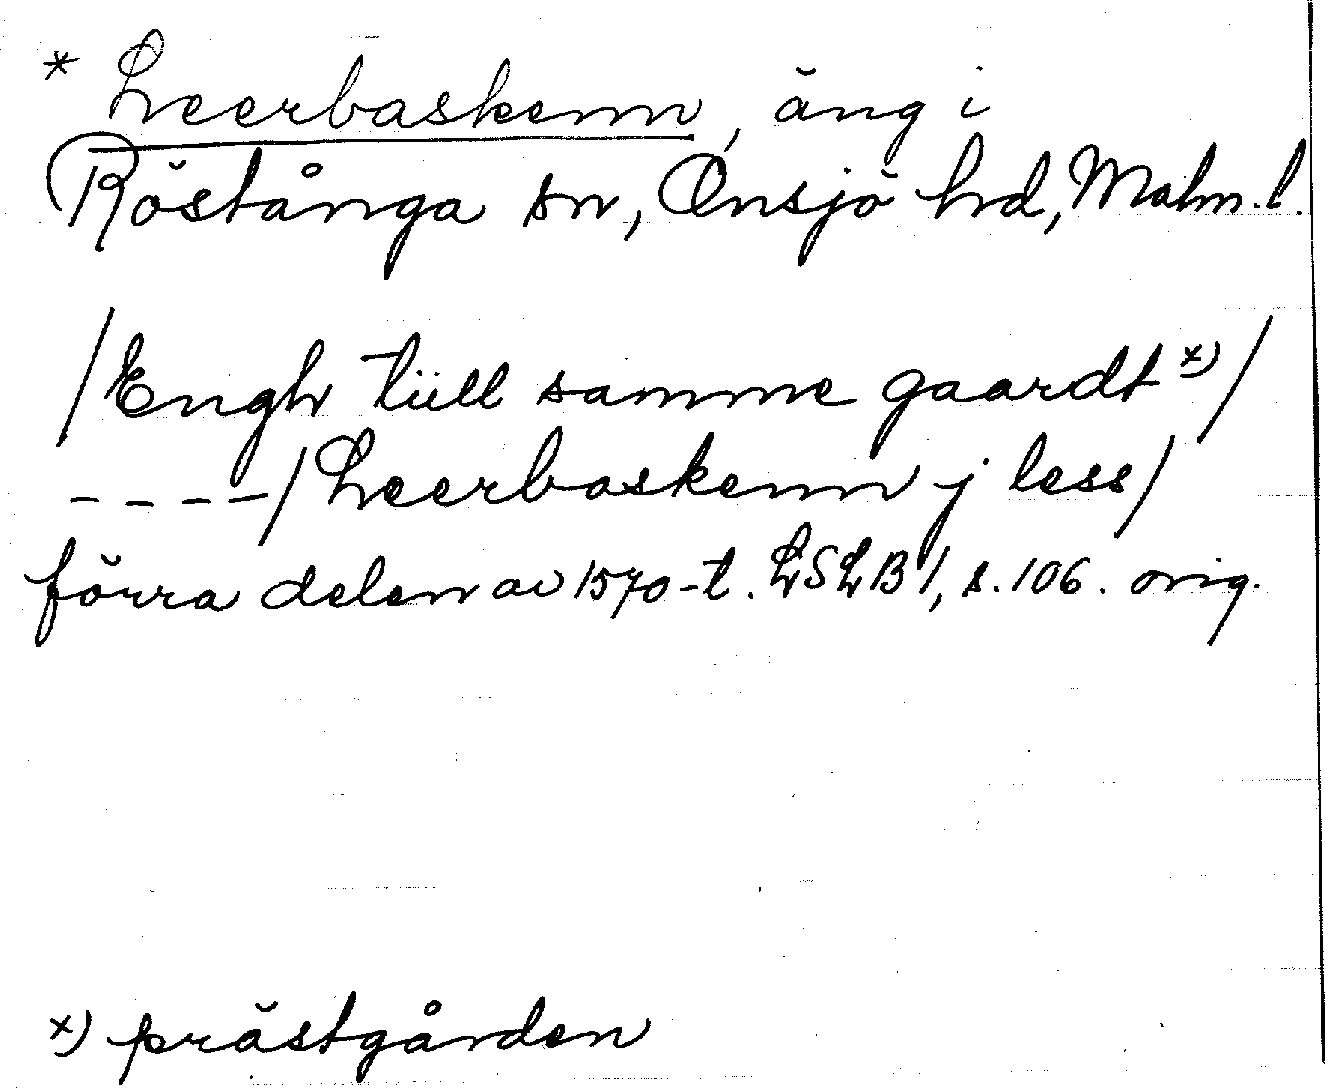 * Leerbaskenn, äng i
Röstånga sn, Onsjö hrd, Malm.l.
/Engh tüll samme gaardt x)/
----/Leerbaskenn j less/
förra delen av 1570-t. LSLB 1, s. 106. orig.
x) prästgården